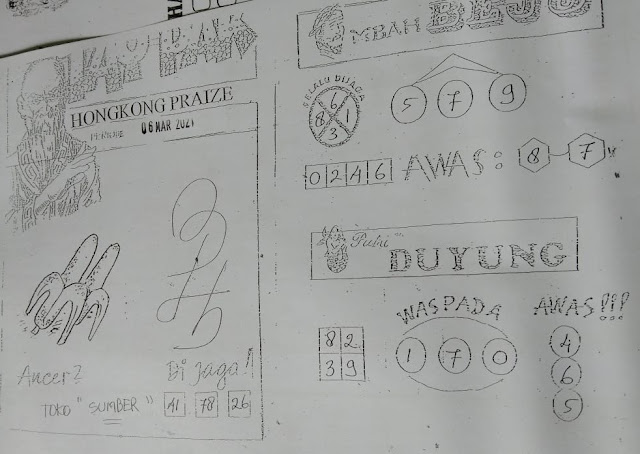 HONGKONG PRAIZE
PERIODE 06 MAR 2021
Di jaga!
Ancer2
TOKO "SUMBER" 41 78 26
MBAH BEJO
SELALU DIJAGA
6
8 1
3
5 7 9
0 2 4 6
AWAS: 8 - 7
Putri
DUYUNG
WASPADA
1 7 0
8 2
3 9
AWAS!!!
4
6
5